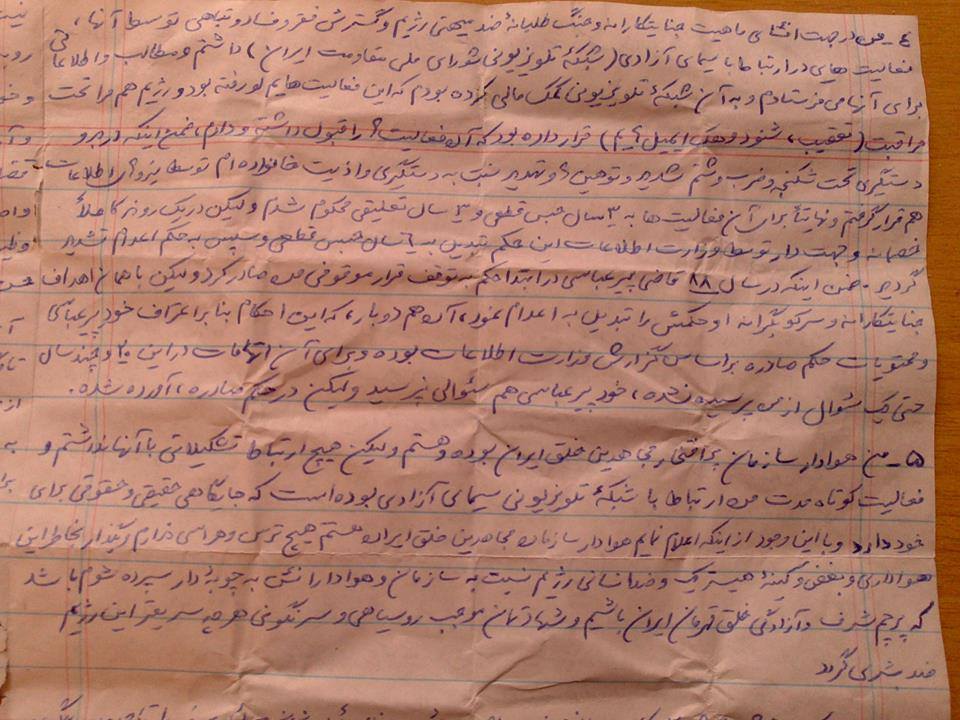 ٤ـ من در جهت افشای ماهیت جنایتکارانه و جنگ طلبانهٔ ضد میهنی رژیم و گسترش فقر و فساد و تباهی توسط آنها،
فعالیت های در ارتباط با سیمای آزادی (شبکهٔ تلویزیونی شورای ملی مقاومت ایران) داشتم و مطالب و اطلاعاتی
برای آنها می فرستادم و به آن شبکهٔ تلویزیونی کمک مالی کرده بودم که این فعالیت هایم لو رفته بود و رژیم هم مرا تحت
مراقبت (تعقیب، شنود و هک ایمیل آیم) قرار داده بود که آن فعالیت ها را قبول داشتم و دارم، ضمن اینکه در بدو
دستگیری تحت شکنجه و ضرب و شتم شدید و توهین ها و تهدید نسبت به دستگیری و اذیت خانواده ام توسط نیروهای اطلاعات
هم قرار گرفتم و نهایتاً برای آن فعالیت ها به ٣ سال حبس قطعی و ٣ سال تعلیقی محکوم شدم و لیکن در یک روند کاملاً
خصمانه و جهت دار توسط وزارت اطلاعات این حکم تبدیل به ٦ سال حبس قطعی و سپس به حکم اعدام تشدید
گردید. ضمن اینکه در سال ٨٨ قاضی پیر عباسی در ابتدا حکم به توقف قرار موقوفی من صادر کرد و لیکن با همان اهداف
جنایتکارانه و سرکوبگرانه او حکمش را تبدیل به اعدام نمود، آن هم دوبار، که این احکام بنا بر اعتراف خود پیر عباسی
و محتویات حکم صادره براساس گزارش وزارت اطلاعات بوده و برای آن اتهامات در این ٢٠ و چند سال
حتی یک سئوال از من پرسیده نشده، خود پیر عباسی هم سئوالی نپرسید و لیکن در حکم صادره، آورده شده.
٥ـ من هوادار سازمان پرافتخار مجاهدین خلق ایران بوده و هستم و لیکن هیچ ارتباط تشکیلاتی با آنها نداشتم و
فعالیت کوتاه مدت من ارتباط با شبکهٔ تلویزیونی سیمای آزادی بوده است که جایگاهی حقیقی و حقوقی برای
خود دارد و با این وجود از اینکه اعلام نمایم هوادار سازمان مجاهدین خلق ایران هستم هیچ ترس و هراسی ندارم و بگذار بخاطر این
هواداری و بغض و کینهٔ هیستریک و ضد انسانی رژیم نسبت به سازمان و هوادارانش به چوبهٔ دار سپرده شوم باشد
که پرچم شرف و آزادگی خلق قهرمان ایران باشیم و شهادتمان موجب روسیاهی و سرنگونی هر چه سریعتر این رژیم
ضد بشری گردد